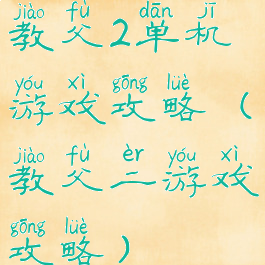 jiào fù dān jī
教父2单机
yóu xì gōng lüè
游戏攻略（
jiào fù èr yóu xì
教父二游戏
gōng lüè
攻略）